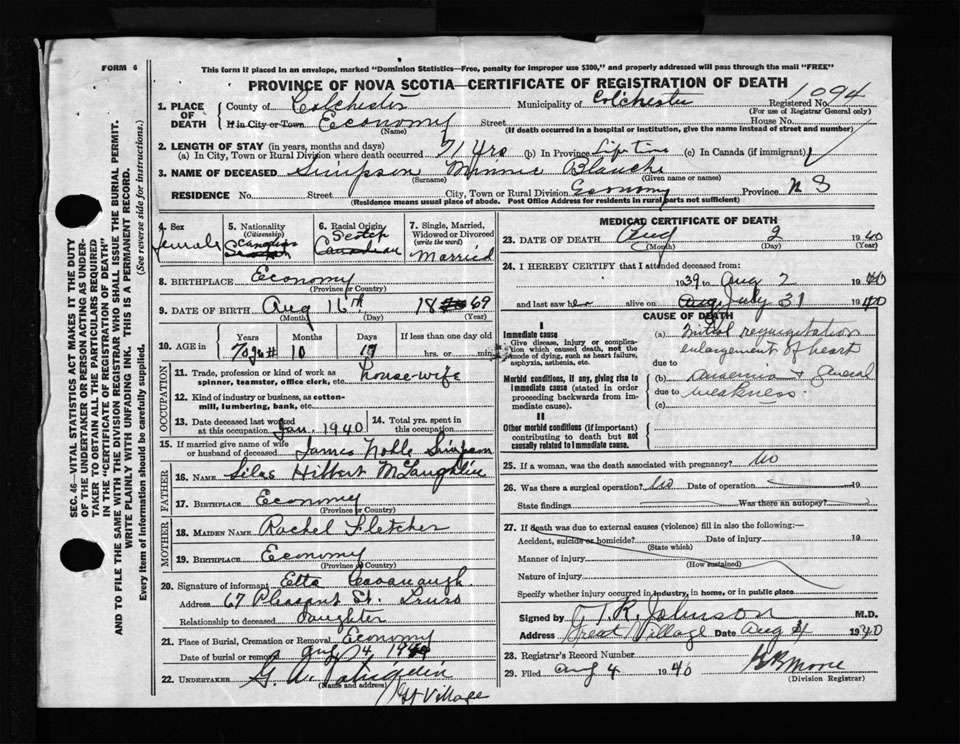 FORM 6
This form if placed in an envelope, marked "Dominion Statistics—Free, penalty for improper use $300," and properly addressed will pass through the mail "FREE"
PROVINCE OF NOVA SCOTIA—CERTIFICATE OF REGISTRATION OF DEATH
1. PLACE OF DEATH County of Colchester Municipality of Colchester Registered No. 1094
(For use of Registrar General only)
If in City or Town Economy Street House No.
(Name) (If death occurred in a hospital or institution, give the name instead of street and number)
2. LENGTH OF STAY (in years, months and days)
(a) In City, Town or Rural Division where death occurred 71 yrs (b) In Province Life time (c) In Canada (if immigrant)
3. NAME OF DECEASED Simpson Minnie Blanche
(Surname) (Given name or names)
RESIDENCE No. Street City, Town or Rural Division Economy Province N S
(Residence means usual place of abode. Post Office Address for residents in rural parts not sufficient)
4. Sex 5. Nationality (Citizenship) 6. Racial Origin 7. Single, Married, Widowed or Divorced (write the word)
Female Canadian Scotch Canadian Married
8. BIRTHPLACE Economy
(Province or Country)
9. DATE OF BIRTH Aug 16th 1869
(Month) (Day) (Year)
10. AGE in Years Months Days If less than one day old
70 10 17 hrs. or min.
OCCUPATION
11. Trade, profession or kind of work as spinner, teamster, office clerk, etc. house-wife
12. Kind of industry or business, as cotton-mill, lumbering, bank, etc.
13. Date deceased last worked at this occupation Jan. 1940 14. Total yrs. spent in this occupation
15. If married give name of wife or husband of deceased James Noble Simpson
FATHER
16. NAME Silas Hilbert McLaughlin
17. BIRTHPLACE Economy
(Province or Country)
MOTHER
18. MAIDEN NAME Rachel Fletcher
19. BIRTHPLACE Economy
(Province or Country)
20. Signature of informant Etta Cavanaugh
Address 67 Pleasant St. Truro
Relationship to deceased Daughter
21. Place of Burial, Cremation or Removal Economy
Date of burial or removal Aug 4 19
22. UNDERTAKER G. A.
(Name and address) Gt Village
MEDICAL CERTIFICATE OF DEATH
23. DATE OF DEATH Aug 2 1940
(Month) (Day) (Year)
24. I HEREBY CERTIFY that I attended deceased from:
1939 to Aug 2 1940
and last saw her alive on July 31 1940
CAUSE OF DEATH
I
Immediate cause
Give disease, injury or complication which caused death, not the mode of dying, such as heart failure, asphyxia, asthenia, etc.
(a) Mitral regurgitation
enlargement of heart
due to
Morbid conditions, if any, giving rise to immediate cause (stated in order proceeding backwards from immediate cause).
(b) anaemia & general
due to weakness.
(c)
II
Other morbid conditions (if important) contributing to death but not causally related to immediate cause.
25. If a woman, was the death associated with pregnancy? No
26. Was there a surgical operation? No Date of operation 19
State findings Was there an autopsy?
27. If death was due to external causes (violence) fill in also the following:—
Accident, suicide or homicide? Date of injury 19
(State which)
Manner of injury
(How sustained)
Nature of injury
Specify whether injury occurred in industry, in home, or in public place
Signed by T. R. Johnson M.D.
Address Great Village Date Aug 1940
28. Registrar's Record Number
29. Filed Aug 4 1940 Moore
(Division Registrar)
SEC. 46—VITAL STATISTICS ACT MAKES IT THE DUTY
OF THE UNDERTAKER OR PERSON ACTING AS UNDER-
TAKER TO OBTAIN ALL THE PARTICULARS REQUIRED
IN THE "CERTIFICATE OF REGISTRATION OF DEATH"
AND TO FILE THE SAME WITH THE DIVISION REGISTRAR WHO SHALL ISSUE THE BURIAL PERMIT.
WRITE PLAINLY WITH UNFADING INK. THIS IS A PERMANENT RECORD.
Every item of information should be carefully supplied. (See reverse side for instructions.)